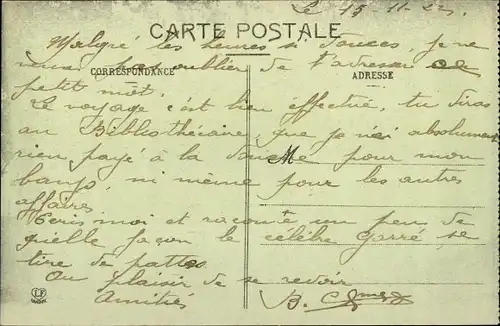 Le 15-11-22
CARTE POSTALE
Malgré les heures si douces, je ne
pas oublier de t'adresser ce
CORRESPONDANCE
ADRESSE
petit mot.
Le voyage c'est bien effectué, tu diras
au Bibliothécaire, que je n'ai absolument
rien payé à la Douane pour mon
M
banjo, ni même pour les autres
affaires
Ecris moi et raconte un peu de
quelle façon le célèbre Garré se
tire de pattes
Au plaisir de se revoir
Amitiés
B.
LF